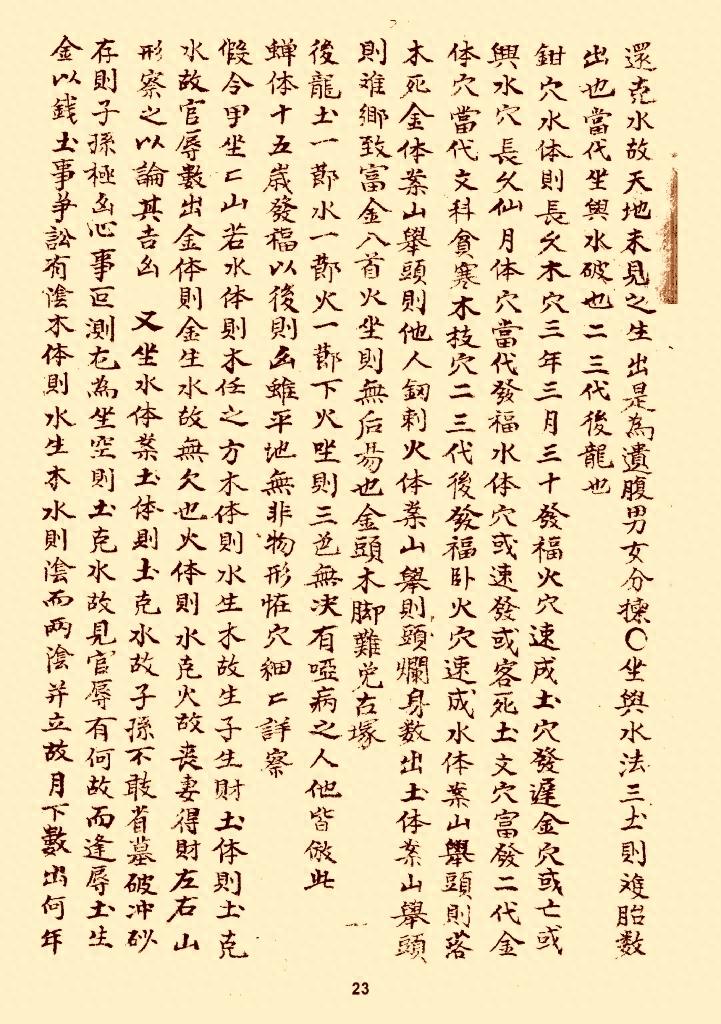 還克水故天地未見之生出是為遺腹男女分揀〇坐與水法三土則難胎数
出也當代坐與水破也二三代後龍也
鉗穴水体則長久木穴三年三月三十發福火穴速成土穴發遲金穴或亡或
與水穴長久仙月体穴當代發福水体穴或速發或客死土文穴富發二代金
体穴當代文科貧寒木枝穴二三代後發福卧火穴速成水体案山舉頭則落
木死金体案山舉頭則他人釼刺火体案山舉則頭爛身数出土体案山舉頭
則难鄉致富金八首火坐則無后昜也金頭木脚難免古塚
後龍土一節水一節火一節下火坐則三邑無决有啞病之人他皆倣此
蝉体十五歲發福以後則凶雖平地無非物形恠穴細〻詳察
假令甲坐〻山若水体則木任之方木体則水生木故生子生財土体則土克
水故官辱數出金体則金生水故無欠也火体則水克火故喪妻得財左右山
形察之以論其吉凶 又坐水体案土体則土克水故子孫不敢省墓破冲砂
存則子孫極凶心事叵測尨為坐空則土克水故見官辱有何故而逢辱土生
金以錢土事爭訟有陰木体則水生木水則陰而两陰并立故月下數出何年
23